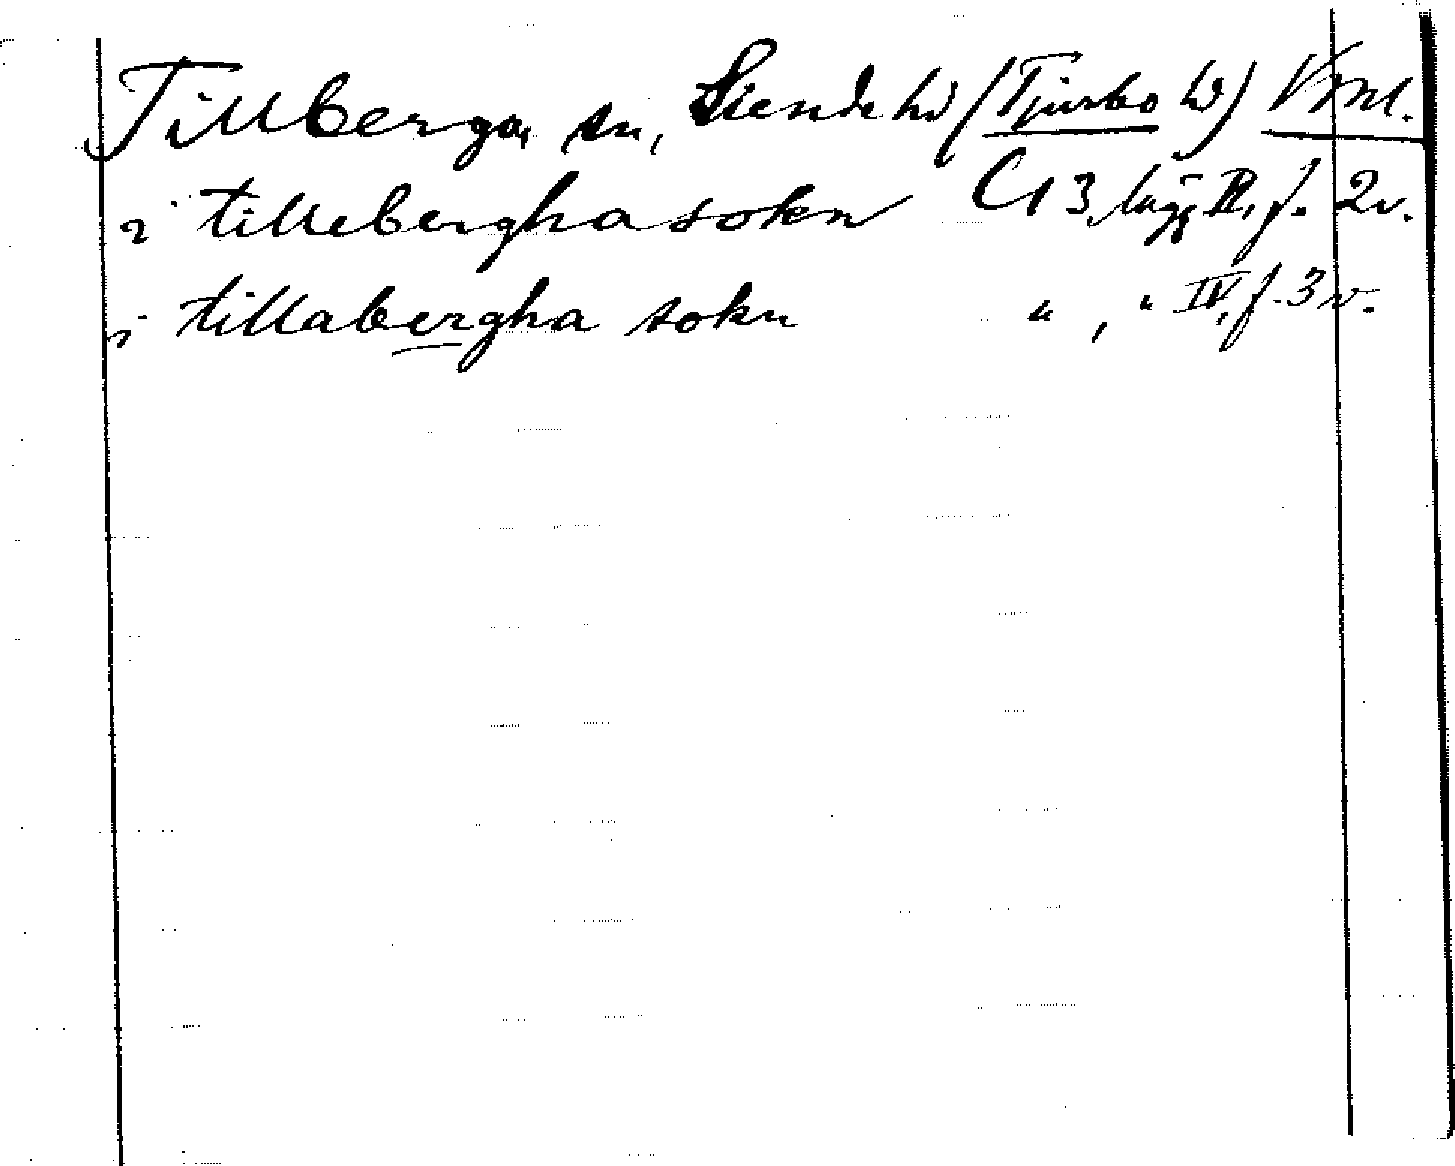 Tillberga, sn, Siende hd (Tjurbo hd) Vml.
i tilleberghasokn C 1 3, lägg II, f. 2v.
i tillabergha sokn " , " IV, f. 3v.